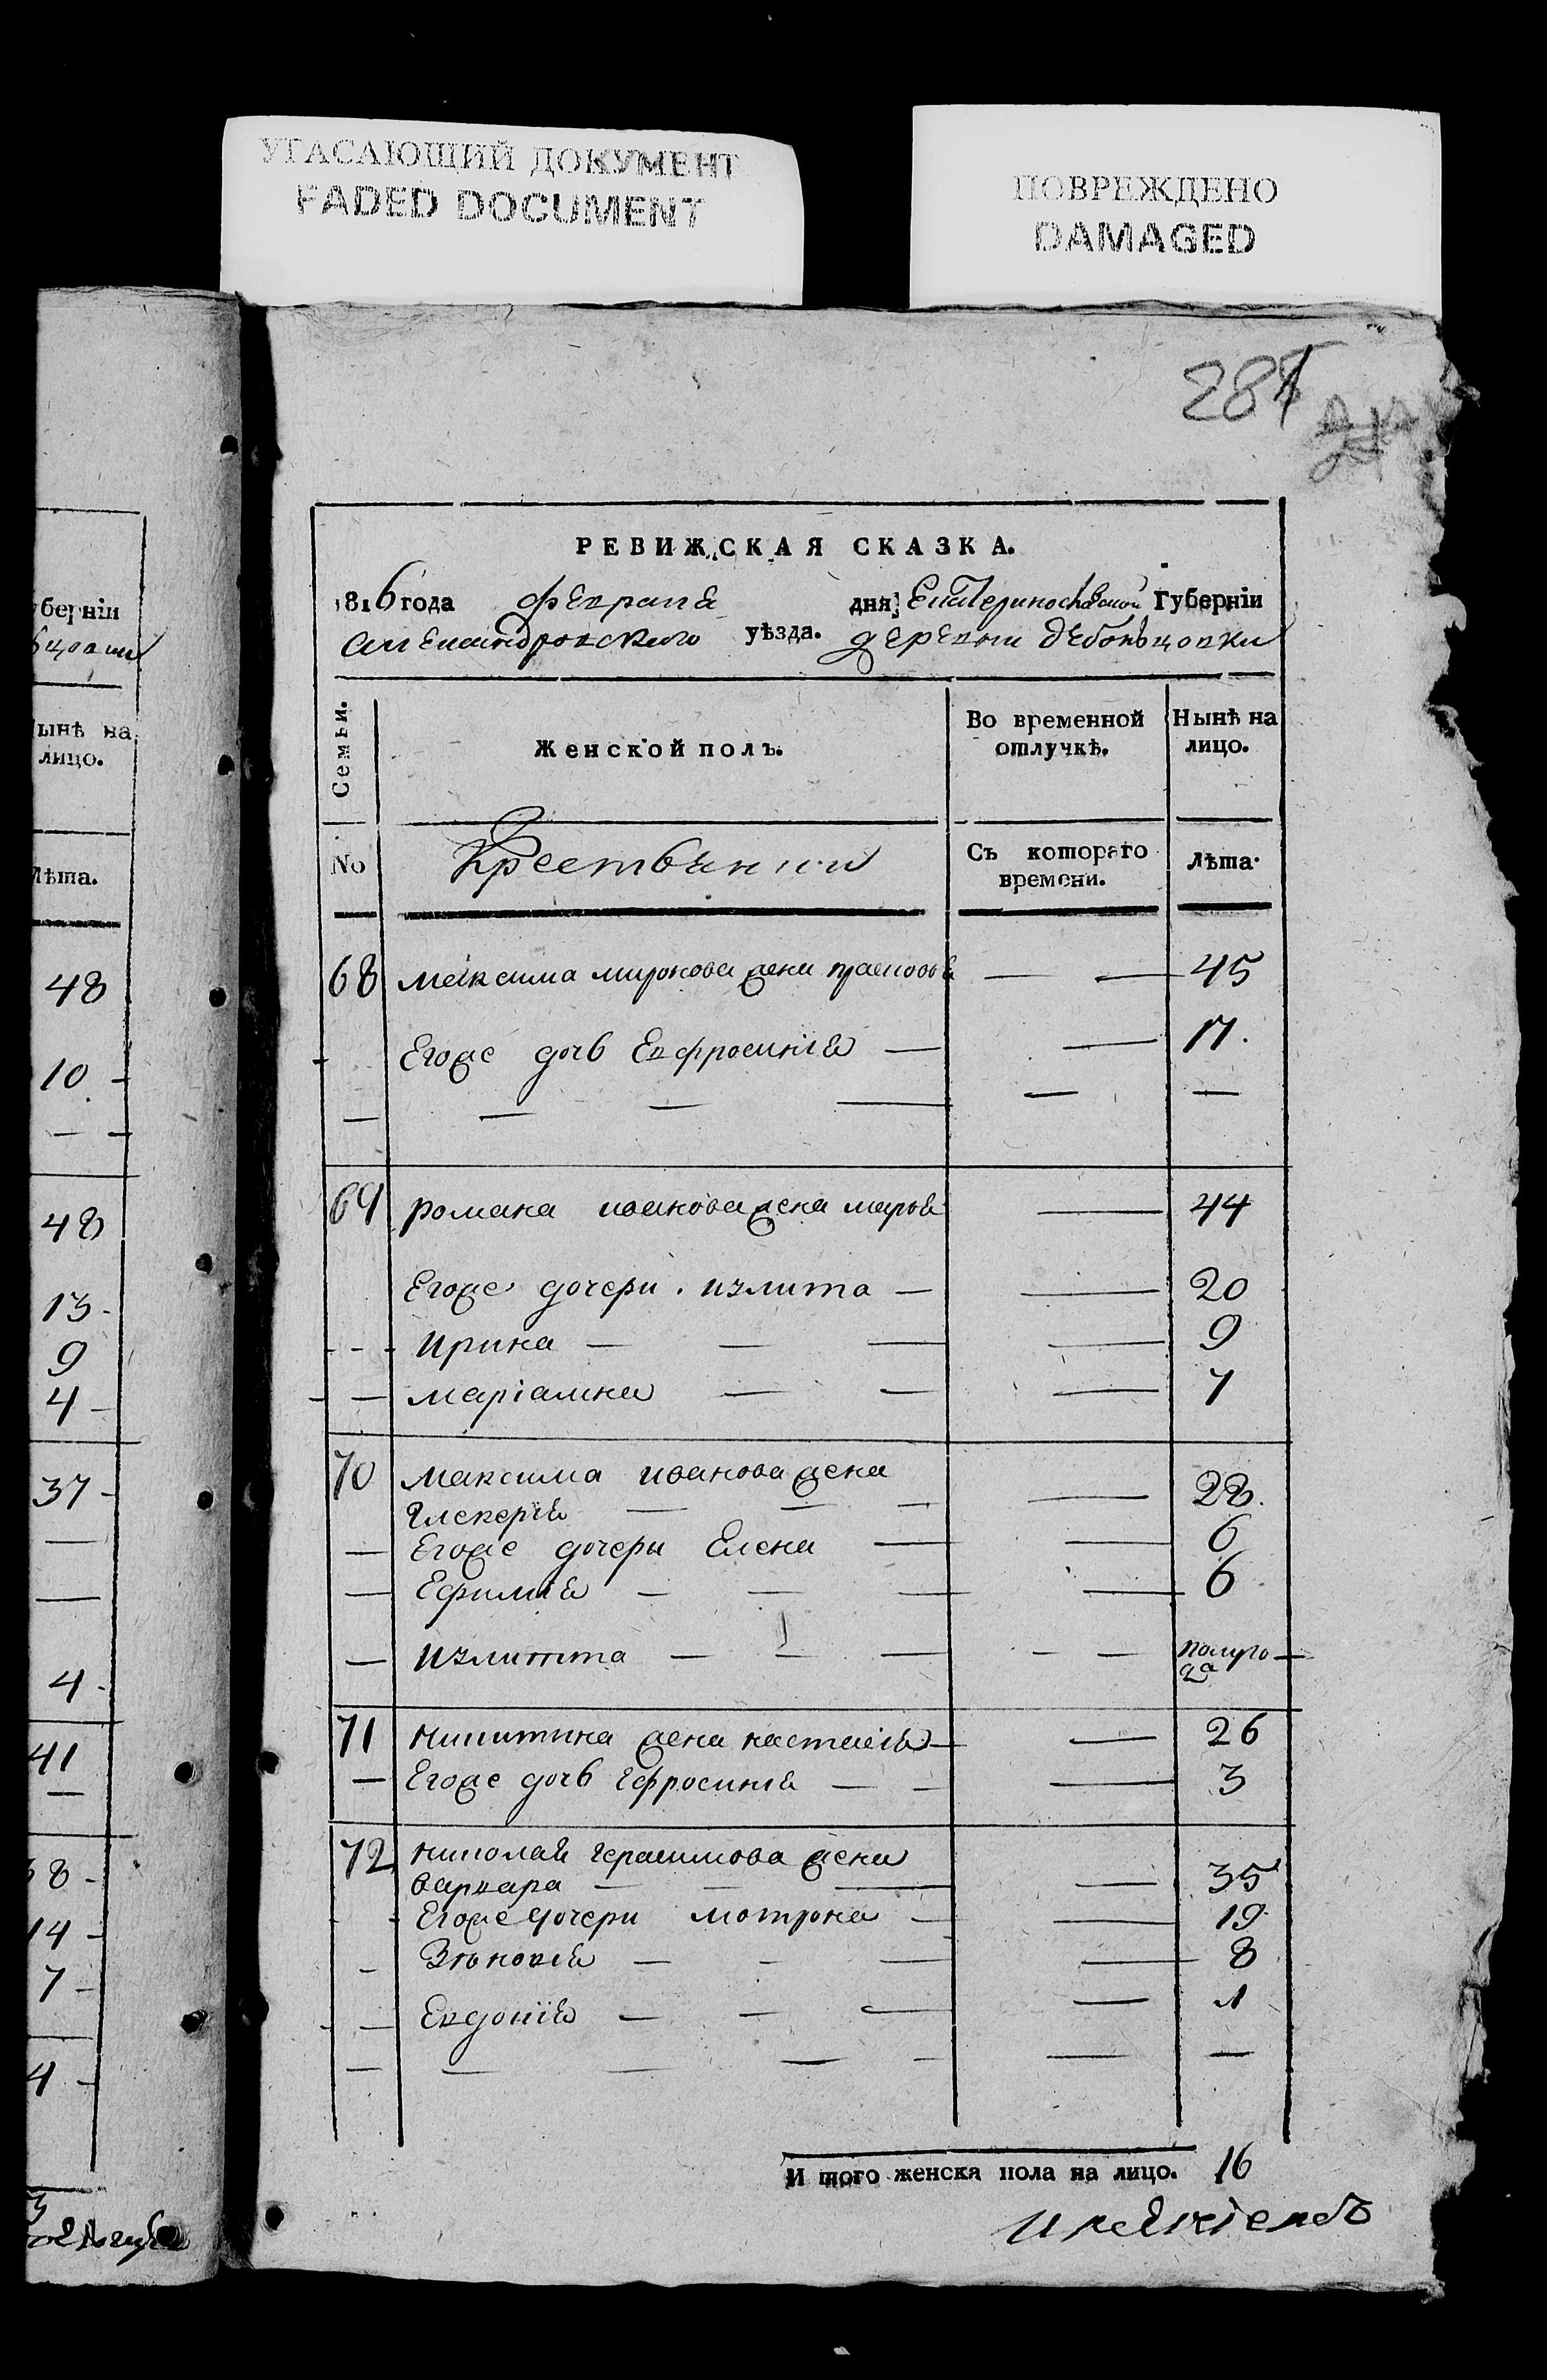 УГАСАЮЩИЙ ДОКУМЕНТ
FADED DOCUMENT
ПОВРЕЖДЕНО
DAMAGED
РЕВИЖСКАЯ СКАЗКА.
1816 года февраля дня Екатериносла̂вской Губерніи
александровскаго уѣзда. деревни дебонъцовки
Семьи.
Женской полъ.
Во временной отлучкѣ.
Нынѣ на лицо.
No
Крестьянии
Съ котораго времени.
Лѣта.
68 максима миронова жена прасковья — — 45
Егоже дочь Евфросинія — — 17.
69 романа иванова жена марья — 44
Егоже дочери. излита — — 20
ирина — — — — 9
маріамна — — — 7
70 максима иванова жена
гликерія — — — — 28.
Егоже дочери Елена — — 6
Ефимія — — — — 6
излитта — — — — — полуго
да
71 никитина жена настасія — — 26
Егоже дочь ефросинія — — — 3
72 николая герасимова жена
варвара — — — — 35
Егоже дочери мотрона — — 19
Зѣновія — — — — 8
Евдокія — — — — 1
И того женска пола на лицо. 16
берніи
ынѣ на
лицо.
Лѣта.
48
10 -
48
13 -
9
4 -
37 -
4 -
41
8 -
14 -
7 -
4 -